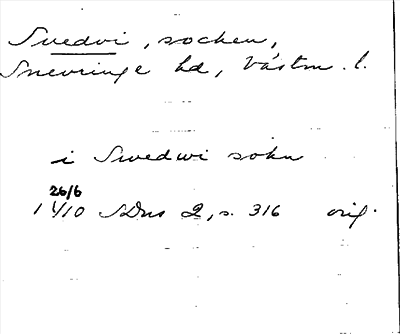 Svedvi, socken,
Snevringe hd, Västm. l.
i Swedwi sokn
26/6
1410 SDns 2, s. 316 orig.